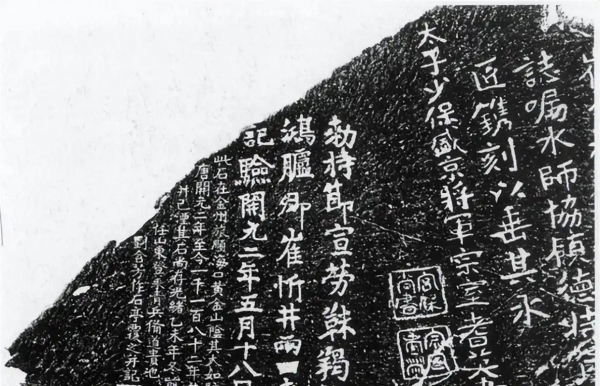 誌囑水師協領德特賁
匠鐫刻以垂其永
太子少保盛京將軍宗室耆英
宮保尚書
勅持節宣勞靺羯
鴻臚卿崔忻井兩口
記驗開元二年五月十八日
此石在金州旅順海口黃金山陰其大如駝
唐開元二年至今一千一百八十二年其
井已湮其石尚存光緒乙未年冬前
任山東登萊青兵備道貴池
劉含芳作石亭覆之并記